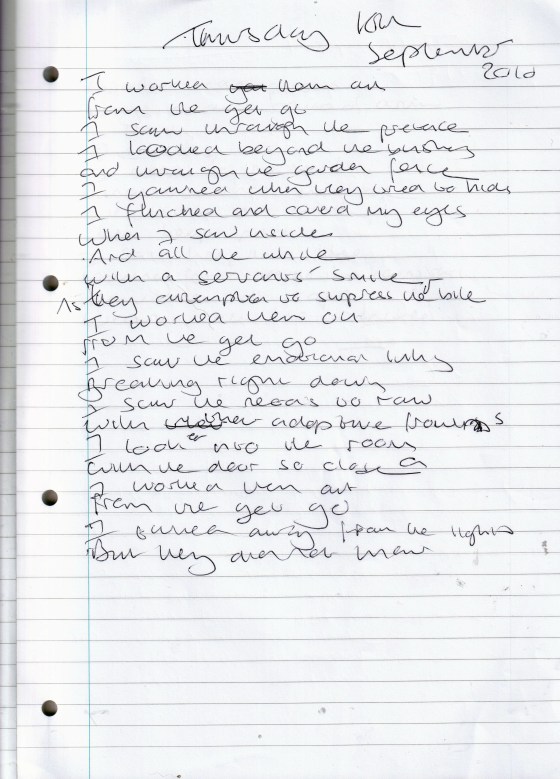 Thursday
September
2010
I worked them out
from the get go
I saw through the pretence
I looked beyond the bushes
and through the garden fence
I yawned when they tried to hide
I flinched and covered my eyes
When I saw inside
And all the while
with a servants' smile
As they attempted to supress the bile
I worked them out
from the get go
I saw the emotional
Breaking right down
I saw the needs to
with adaptive frowns
I look into the room
with the door so closed
I worked them out
from the get go
I turned away from the lights
But they did not